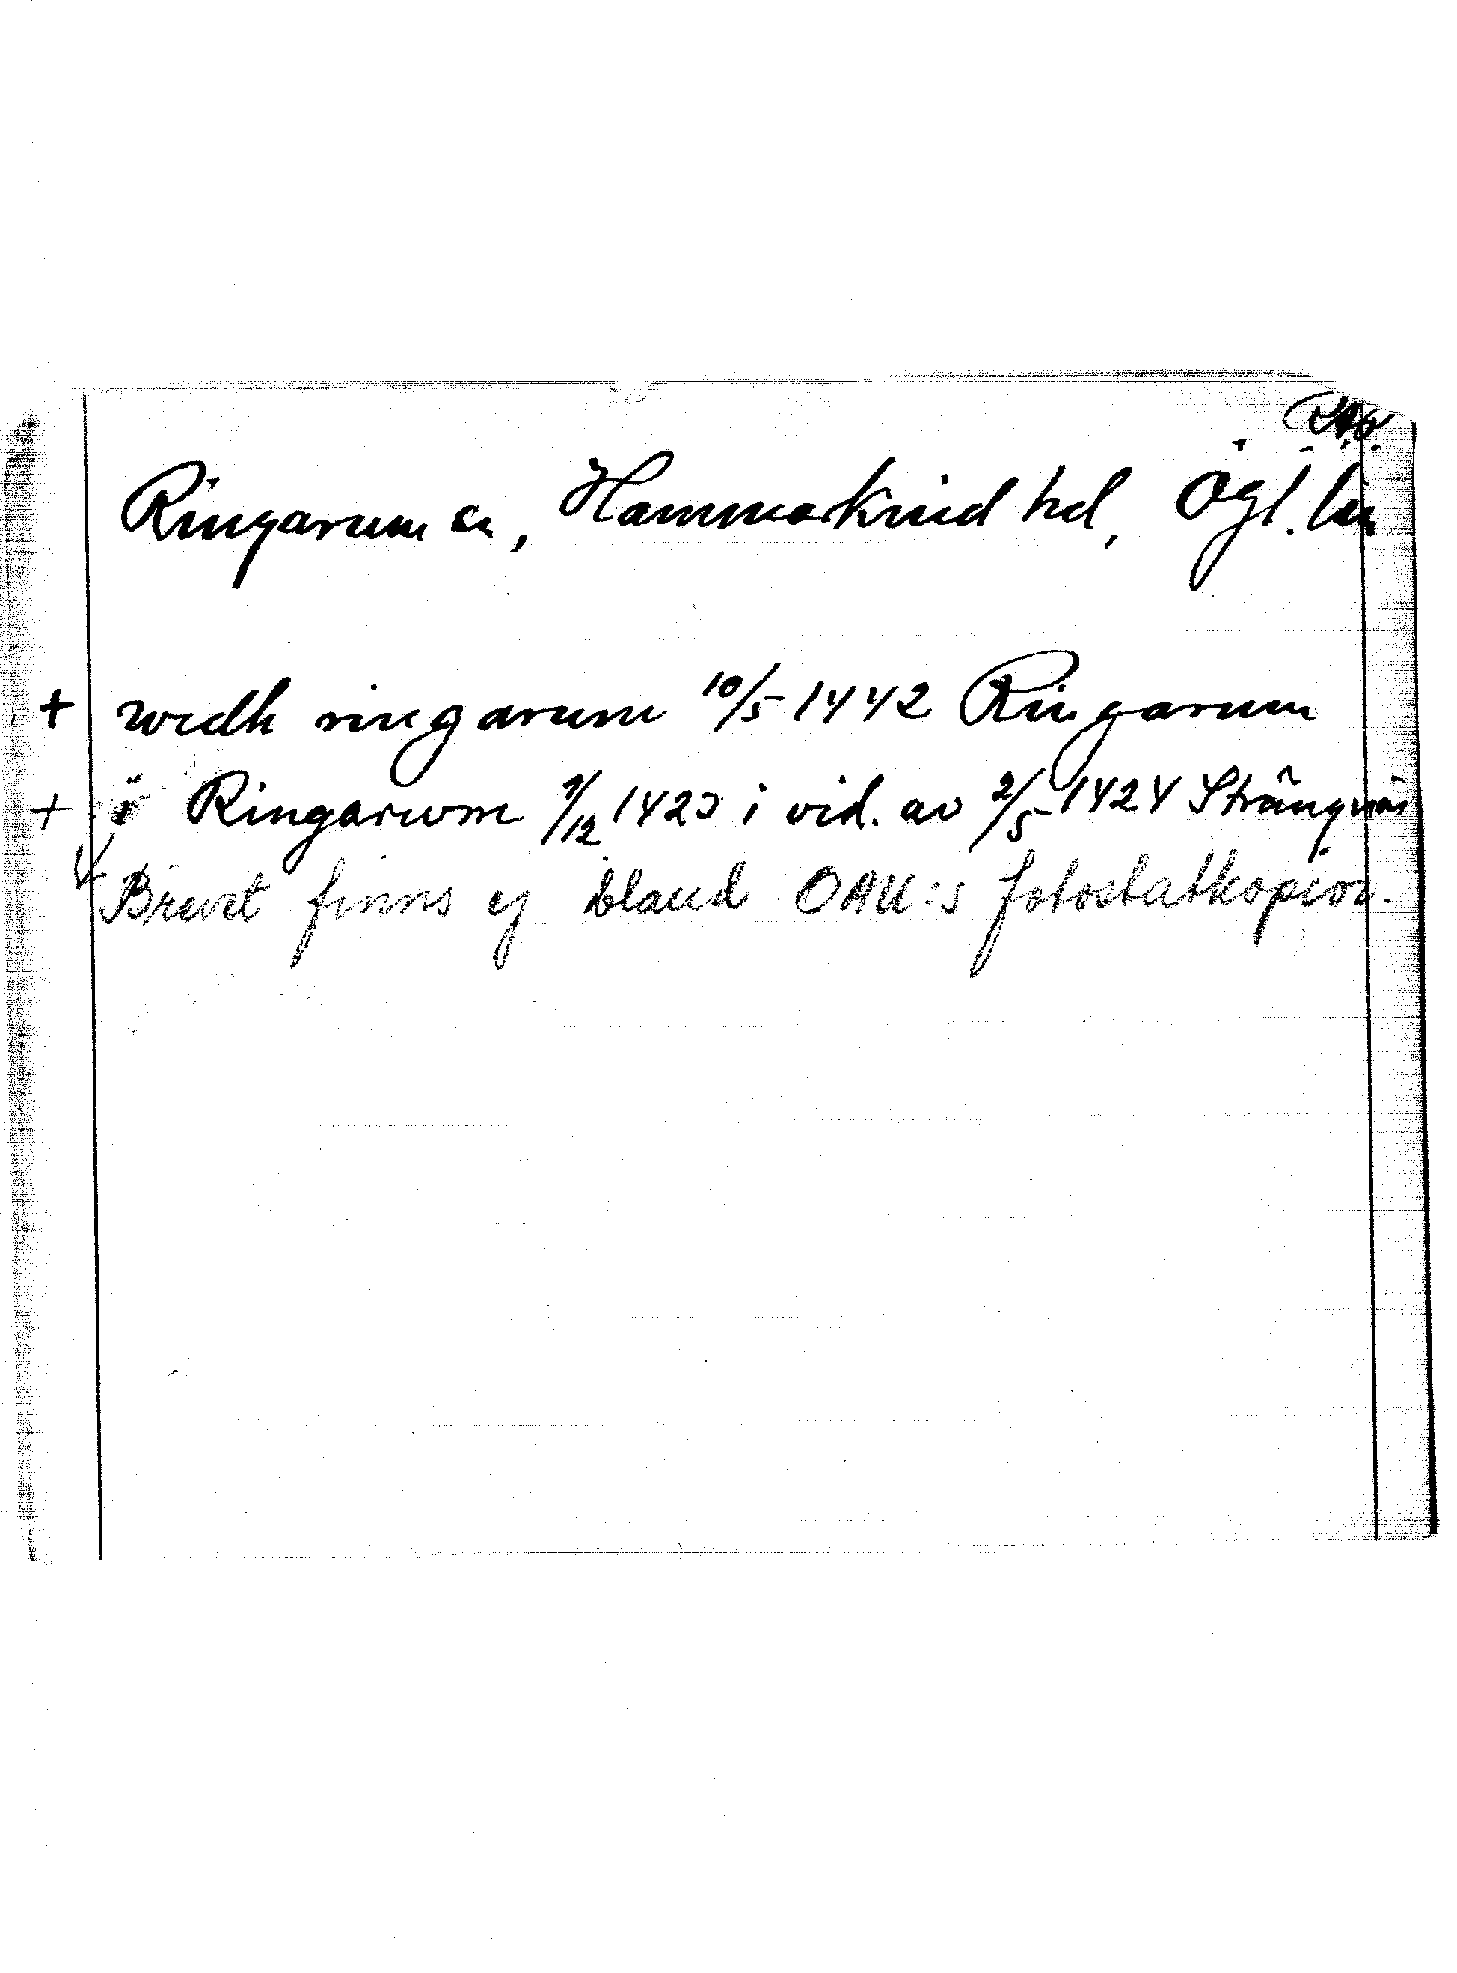 Ringarum sn, Hammarkind hd, Ögl. län
+ widh ringarum 10/5 1442 Ringarum
+ i Ringarwm 1/12 1423 i vid. av 2/5 1424 Strängnäs
Brevet finns ej bland OAU:s fotostatkopior.